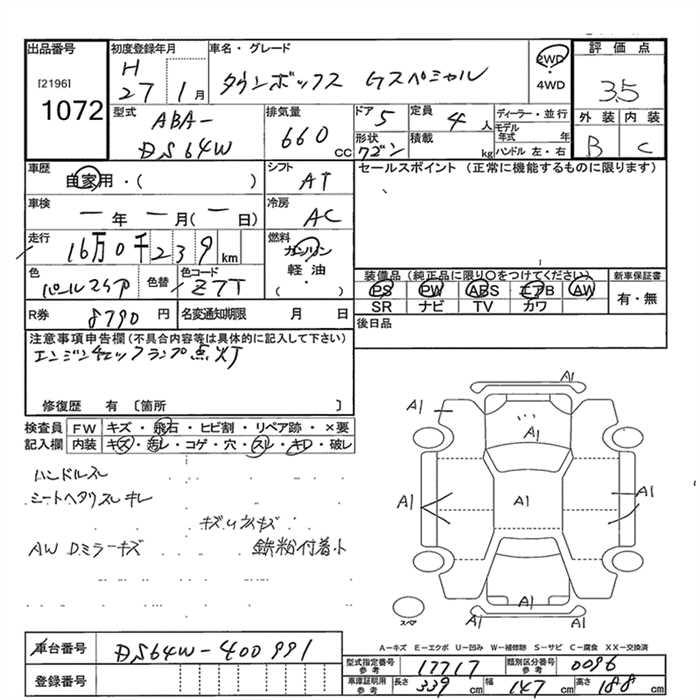 出品番号
[2196]
1072
初度登録年月
H
27 1月
車名・グレード
タウンボックス Gスペシャル
2WD
・
4WD
評価点
3.5
外装 内装
B C
型式
ABA-
DS64W
排気量
660
CC
ドア 5
定員 4 人
形状
ワゴン
積載
kg
ディーラー・並行
モデル
年式 年
ハンドル 左・右
車歴
自家用・( )
シフト
AT
セールスポイント (正常に機能するものに限ります)
車検
ー 年 ー 月(ー日)
冷房
AC
走行
16万0千239
km
燃料
ガソリン
軽油
( ・ )
色
パールマイカ
色替
色コード
Z7T
装備品 (純正品に限り○をつけてください)
PS PW ABS エアB AW
SR ナビ TV カワ
新車保証書
有・無
R券 8790 円
名変通知期限 月 日
後日品
注意事項申告欄(不具合内容等は具体的に記入して下さい)
エンジンチェックランプ点灯
修復歴 有 〔箇所 〕
検査員
記入欄
FW キズ・飛石・ヒビ割・リペア跡・×要
内装 キズ・・コゲ・穴・スレ・・破レ
ハンドルスレ
シートヘタリスレキレ
AW Dミラーキズ
鉄粉付着小
A1
A1
A1
A1
A1
A1
A1
A1
A1
スペア
A－キズ E－エクボ U－凹み W－補修跡 S－サビ C－腐食 XX－交換済
車台番号 DS64W-400991
登録番号
型式指定番号
参考
17717
類別区分番号
参考
0096
車庫証明用
参考
長さ 339 cm 幅 147 cm 高さ 188 cm